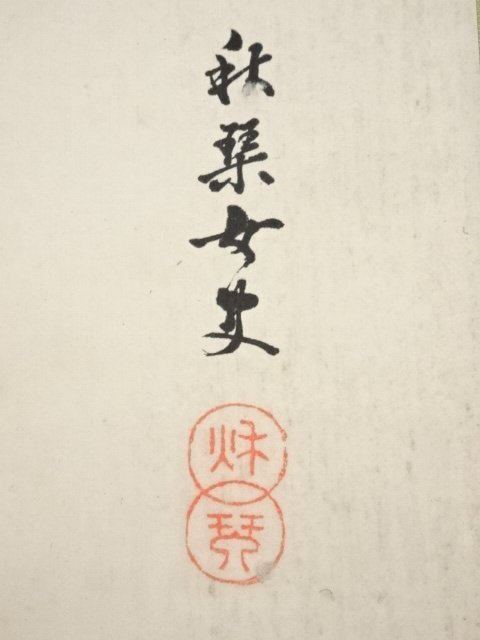 秋琹女史
秌
琴